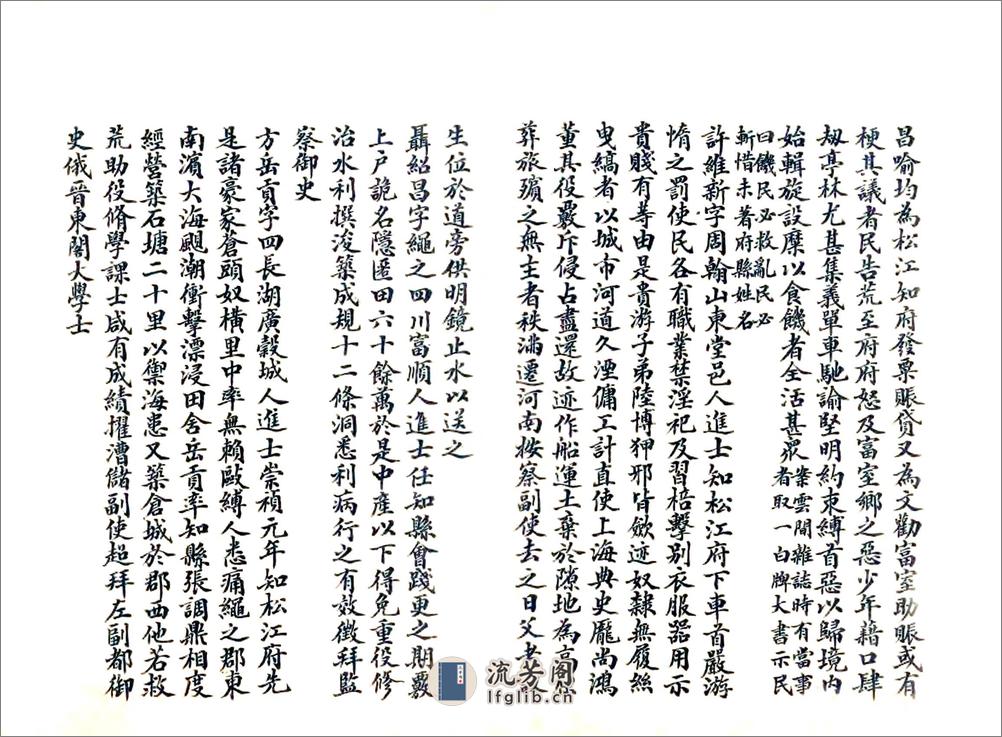 昌喻均為松江知府發票賬貸又為文勸富室助賬或有
梗其議者民告荒至府府怒及富室鄉之惡少年藉口肆
刼亭林尤甚集義單車馳諭堅明約束縛首惡以歸境內
始輯旋設糜以食饑者全活甚眾案雲間雜誌時有當事者取一白牌大書示民
曰饑民必救亂民必斬惜未著府縣姓名
許維新字周翰山東堂邑人進士知松江府下車首嚴游
惰之罰使民各有職業禁淫祀及習棓擊別衣服器用示
貴賤有等由是貴游子弟陸博狎邪皆斂迹奴隸無履絲
曳縞者以城市河道久湮傭工計直使上海典史龐尚鴻
董其役覈斥侵占盡還故迹作船運土棄於隙地為高
葬旅殯之無主者秩滿遷河南按察副使去之日父老
生位於道旁供明鏡止水以送之
聶紹昌字繩之四川富順人進士任知縣會踐更之期覈
上户詭名隱匿田六十餘萬於是中產以下得免重役修
治水利撰浚築成規十二條洞悉利病行之有效徵拜監
察御史
方岳貢字四長湖廣穀城人進士崇禎元年知松江府先
是諸豪家蒼頭奴橫里中率無賴毆縛人悉痛繩之郡東
南濱大海颶潮衝擊漂浸田舍岳貢率知縣張調鼎相度
經營築石塘二十里以禦海患又築倉城於郡西他若救
荒助役脩學課士咸有成績擢漕儲副使超拜左副都御
史俄晉東閣大學士
流芳阁
lfglib.cn